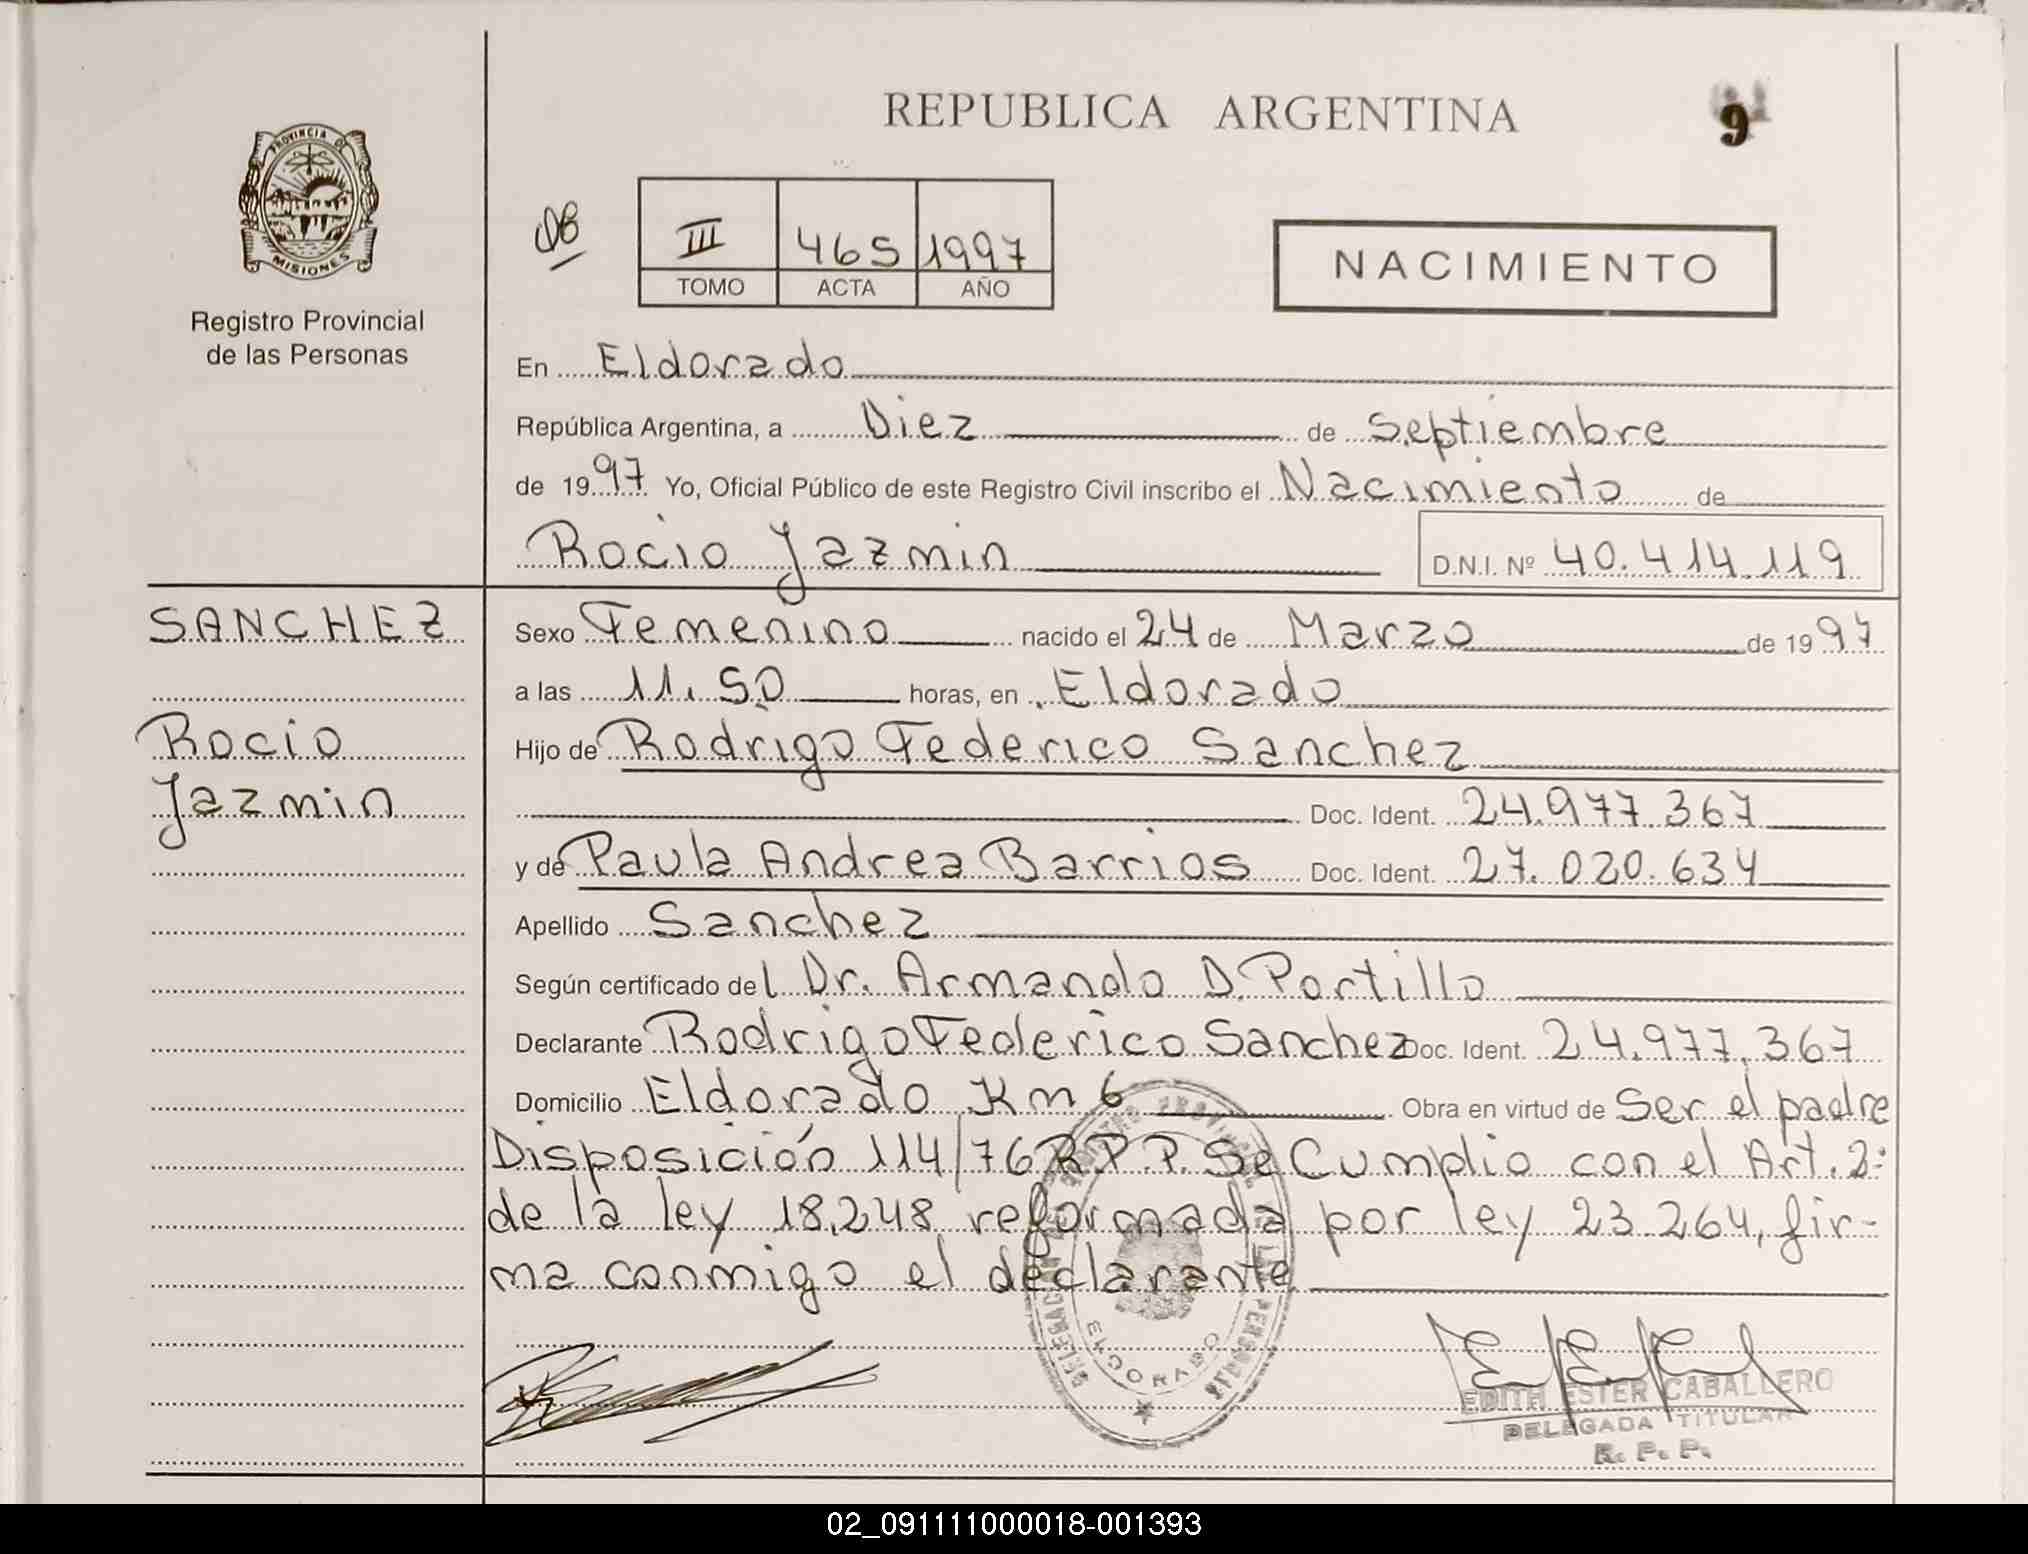 REPUBLICA ARGENTINA
9
PROVINCIA DE
MISIONES
Registro Provincial
de las Personas
III 465 1997
TOMO ACTA AÑO
NACIMIENTO
En Eldorado
República Argentina, a Diez de Septiembre
de 1997 Yo, Oficial Público de este Registro Civil inscribo el Nacimiento de
Rocio Jazmin D.N.I. Nº 40.414.119
SANCHEZ
Rocio
Jazmin
Sexo Femenino nacido el 24 de Marzo de 1997
a las 11.50 horas, en Eldorado
Hijo de Rodrigo Federico Sanchez
Doc. Ident. 24.977.367
y de Paula Andrea Barrios Doc. Ident. 27.020.634
Apellido Sanchez
Según certificado del Dr. Armando D. Portillo
Declarante Rodrigo Federico Sanchez Doc. Ident. 24.977.367
Domicilio Eldorado Km 6 Obra en virtud de Ser el padre
Disposición 114/76 R.P.P. Se Cumplio con el Art. 2:
de la ley 18.248 reformada por ley 23.264, fir-
ma conmigo el declarante
ELDORADO
EDITH ESTER CABALLERO
DELEGADA TITULAR
R. P. P.
02_091111000018-001393